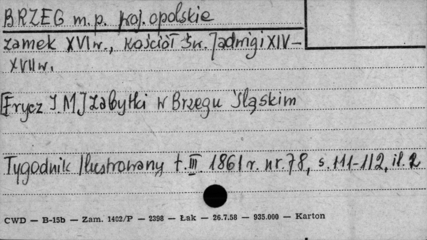 BRZEG m.p. woj. opolskie
zamek XVI w., kościół Św. Jadwigi XIV-
XVII w.
[Frycz J.M.] Zabytki w Brzegu Śląskim
Tygodnik Ilustrowany t. III 1861 r. nr. 78, s. 111-112, il. 2
CWD — B-15b — Zam. 1402/P — 2398 — Łak — 26.7.58 — 935.000 — Karton